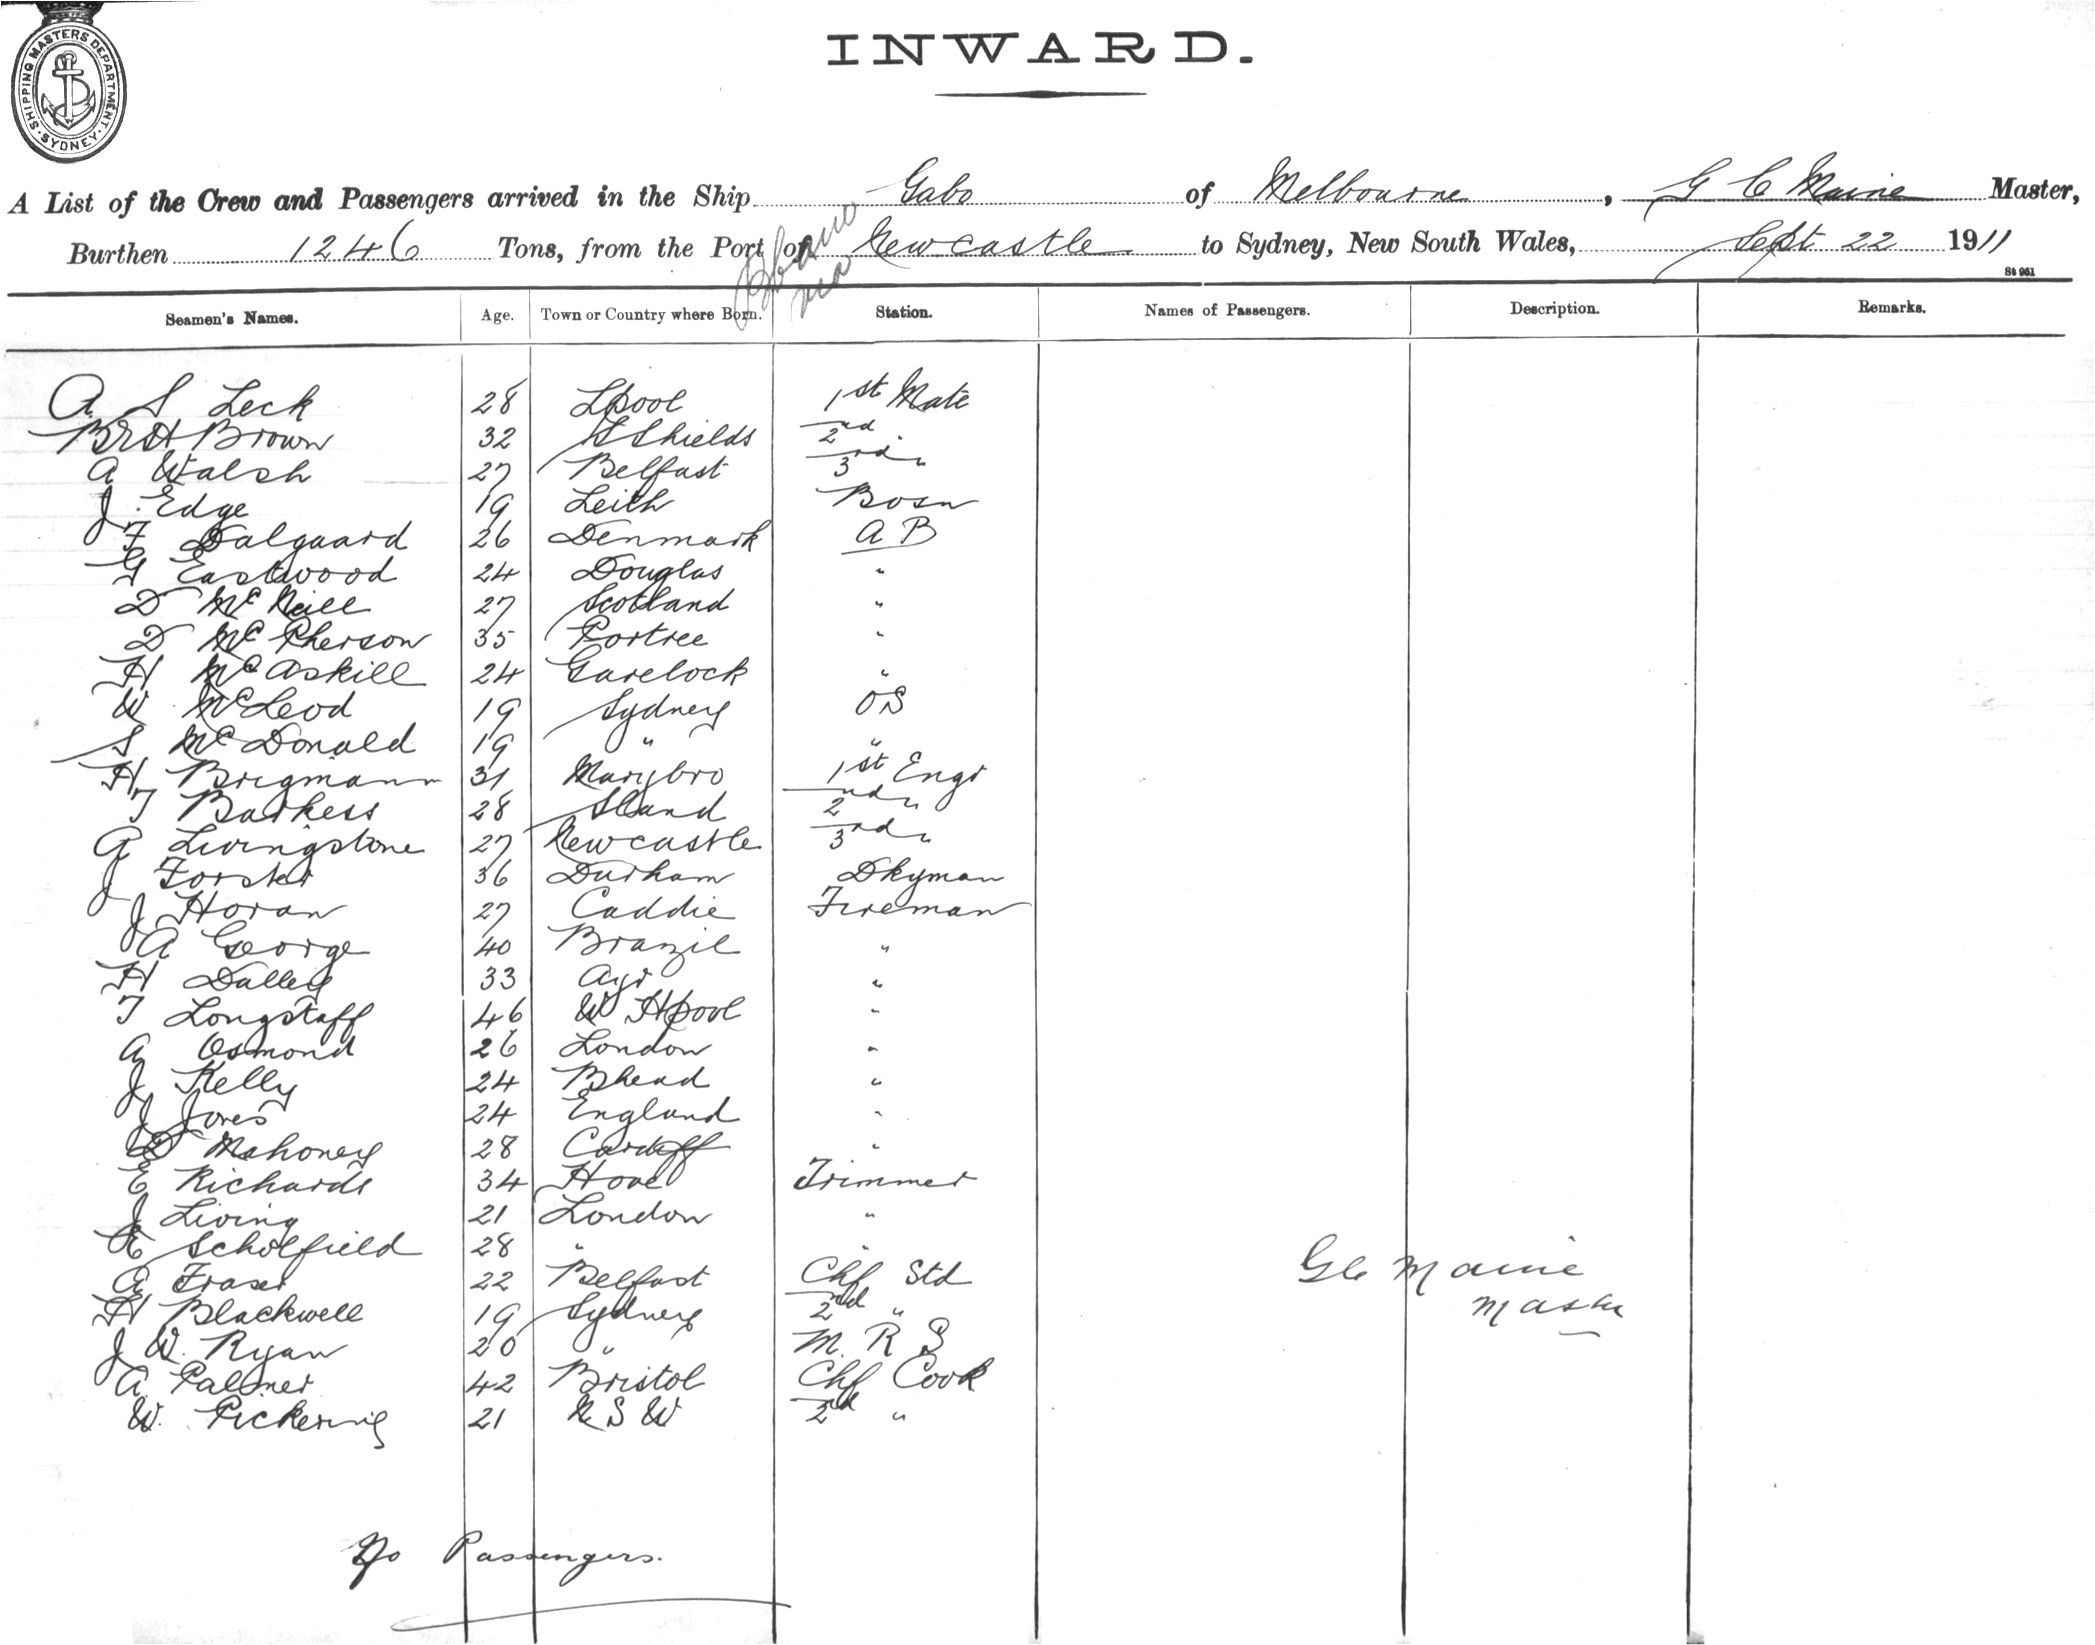 SHIPPING MASTERS DEPARTMENT. SYDNEY
INWARD.
A List of the Crew and Passengers arrived in the Ship Gabo of Melbourne, G C Maine Master,
Burthen 1246 Tons, from the Port of Newcastle to Sydney, New South Wales, Sept 22 1911
St 961
Seamen's Names. Age. Town or Country where Born. Station. Names of Passengers. Description. Remarks.
A S Leck 28 Lpool 1st Mate
Brown 32 Shields 2nd "
A Walsh 27 Belfast 3rd "
J Edge 19 Leith Bosn
F Dalgaard 26 Denmark A B
G Eastwood 24 Douglas "
D McNeill 27 Scotland "
D McPherson 35 Portree "
H McAskill 24 Garelock "
W McLeod 19 Sydney OS
S McDonald 19 " "
H Brigmann 31 Marybro 1st Engr
T Barkess 28 Sland 2nd "
A Livingstone 27 Newcastle 3rd "
J Forster 36 Durham Dkyman
J Horan 27 Caddie Fireman
A George 40 Brazil "
H Dalley 33 Ayr "
T Longstaff 46 W Hpool "
A Osmond 26 London "
J Kelly 24 Bhead "
J Jones 24 England "
D Mahoney 28 Cardiff "
E Richards 34 Hove Trimmer
J Living 21 London "
E Scholfield 28 " "
A Fraser 22 Belfast Chf Std
H Blackwell 19 Sydney 2nd "
J W. Ryan 20 " M. R S
A Palmer 42 Bristol Chf Cook
W. Pickering 21 N S W 2nd "
G C Maine
Master
No Passengers.